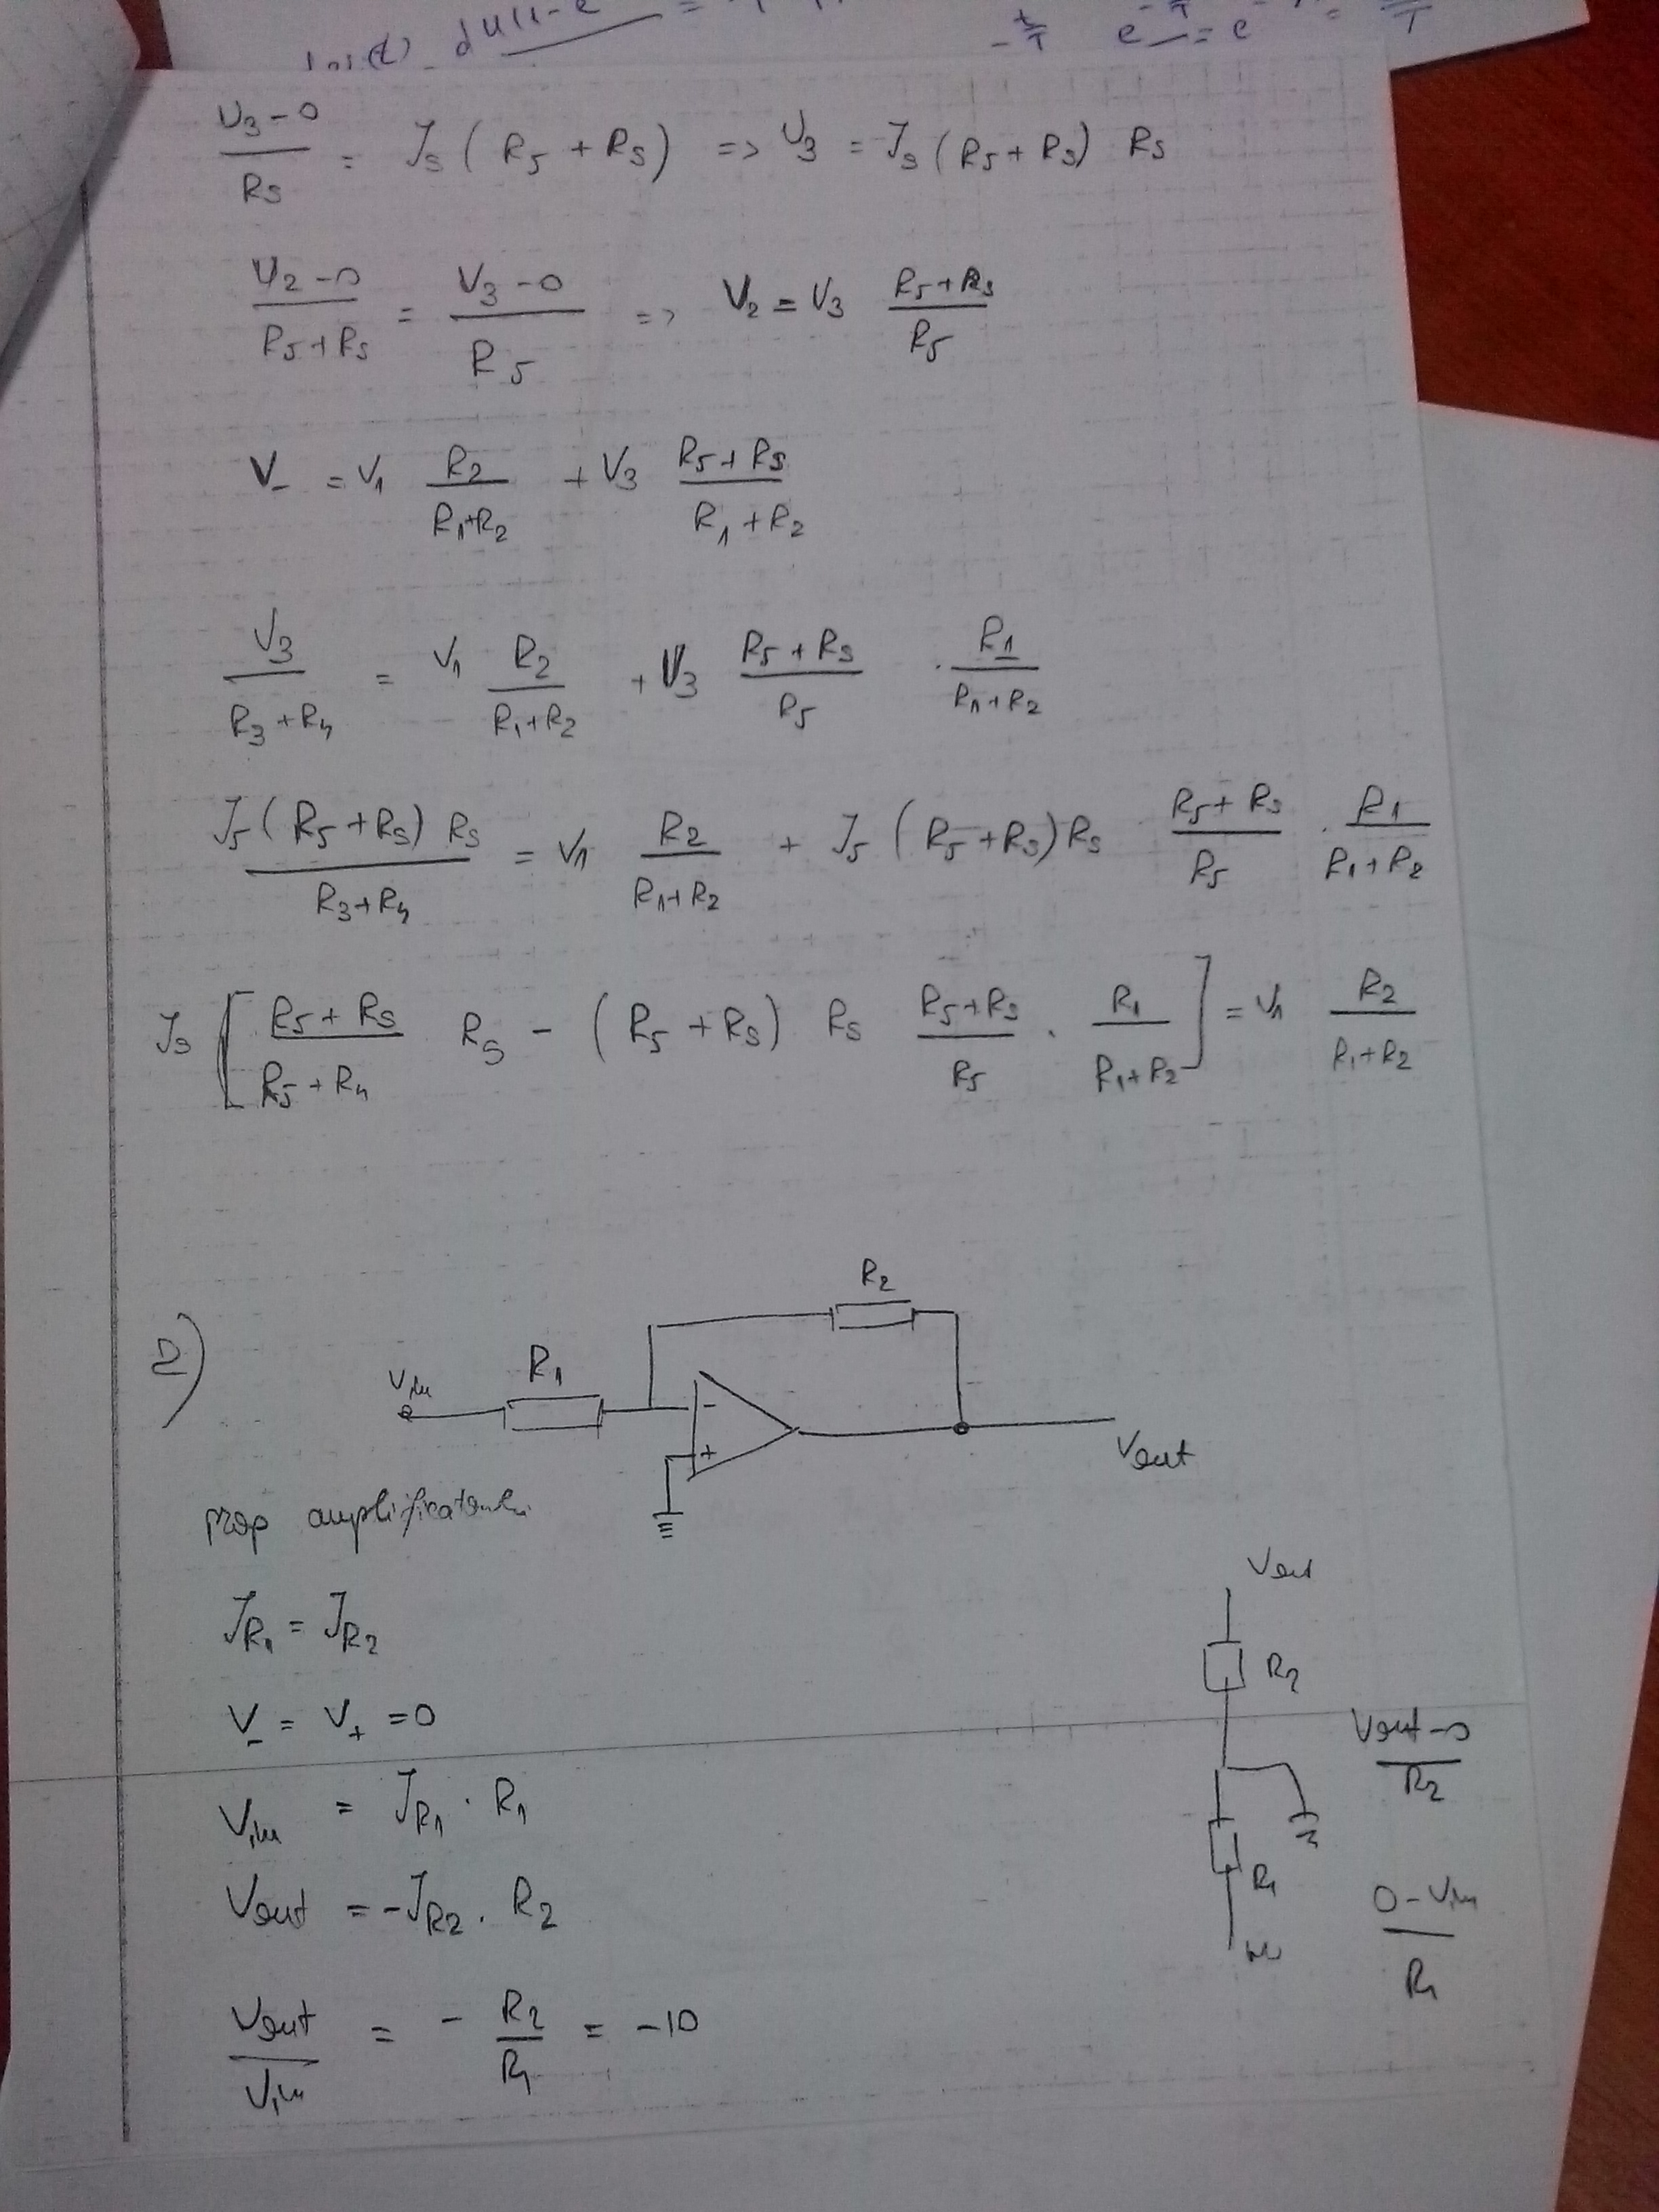 V3-0 / RS = Js (R5 + RS) => V3 = Js (R5 + RS) RS
V2-0 / R5+RS = V3-0 / R5 => V2 = V3 R5+RS / R5
V- = V1 R2 / R1+R2 + V3 R5+RS / R1+R2
V3 / R3+R4 = V1 R2 / R1+R2 + V3 R5+RS / R5 · R1 / R1+R2
J5 (R5+RS) RS / R3+R4 = V1 R2 / R1+R2 + J5 (R5+RS) RS R5+RS / R5 · R1 / R1+R2
Js [ R5+RS / R5+R4 RS - (R5+RS) RS R5+RS / R5 · R1 / R1+R2 ] = V1 R2 / R1+R2
2)
R2
Vin
R1
-
+
Vout
prop
JR1 = JR2
V- = V+ = 0
Vin = JR1 · R1
Vout = -JR2 · R2
Vout / Vin = - R2 / R1 = -10
Vout
R2
Vout-0 / R2
R1
0-Vin / R1